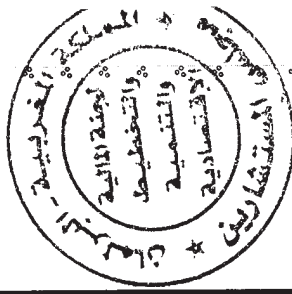 المملكة المغربية - البرلمان
المستشارين
لجنة المالية
والتخطيط
والتنمية
الاقتصادية